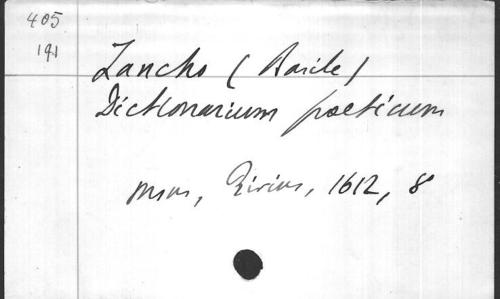 405
191
Zancho (Basile)
Dictionarium poeticum
Mons, Rivius, 1612, 8